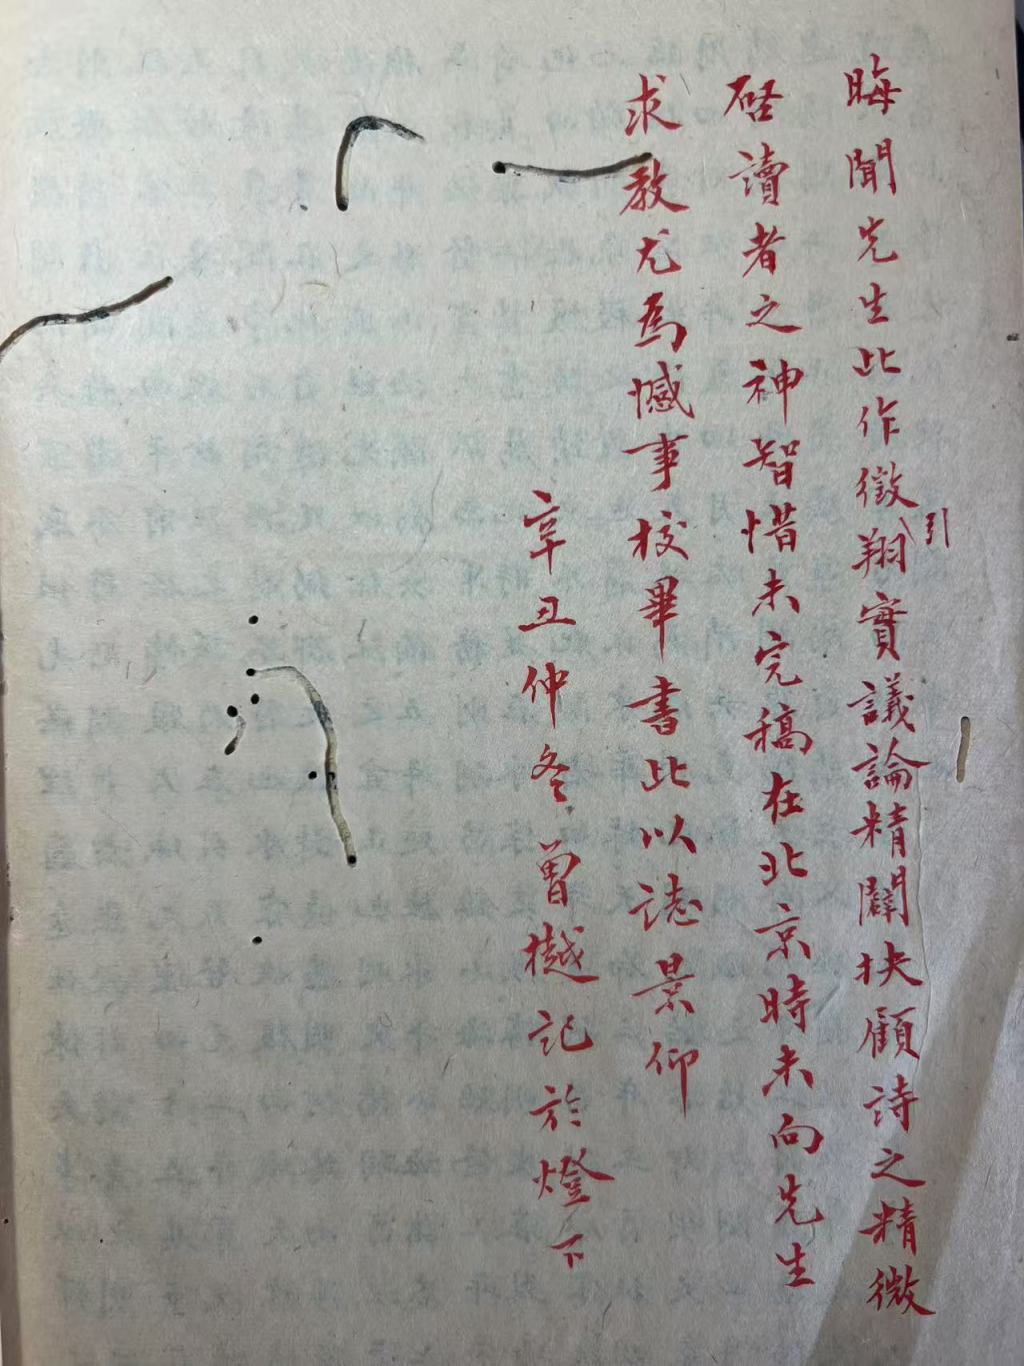 晦聞先生此作徵引翔實議論精闢抉顧詩之精微
啓讀者之神智惜未完稿在北京時未向先生
求教尤為憾事校畢書此以誌景仰
辛丑仲冬曾樾記於燈下